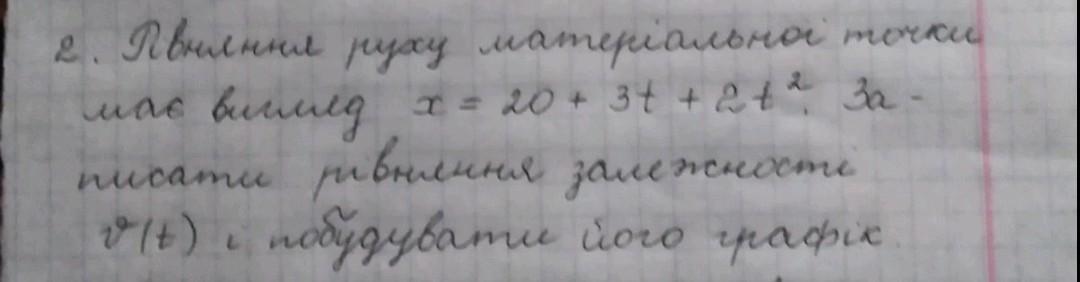 2. Рівняння руху матеріальної точки
має вигляд x = 20 + 3t + 2t². За-
писати рівняння залежності
v(t) і побудувати його графік.